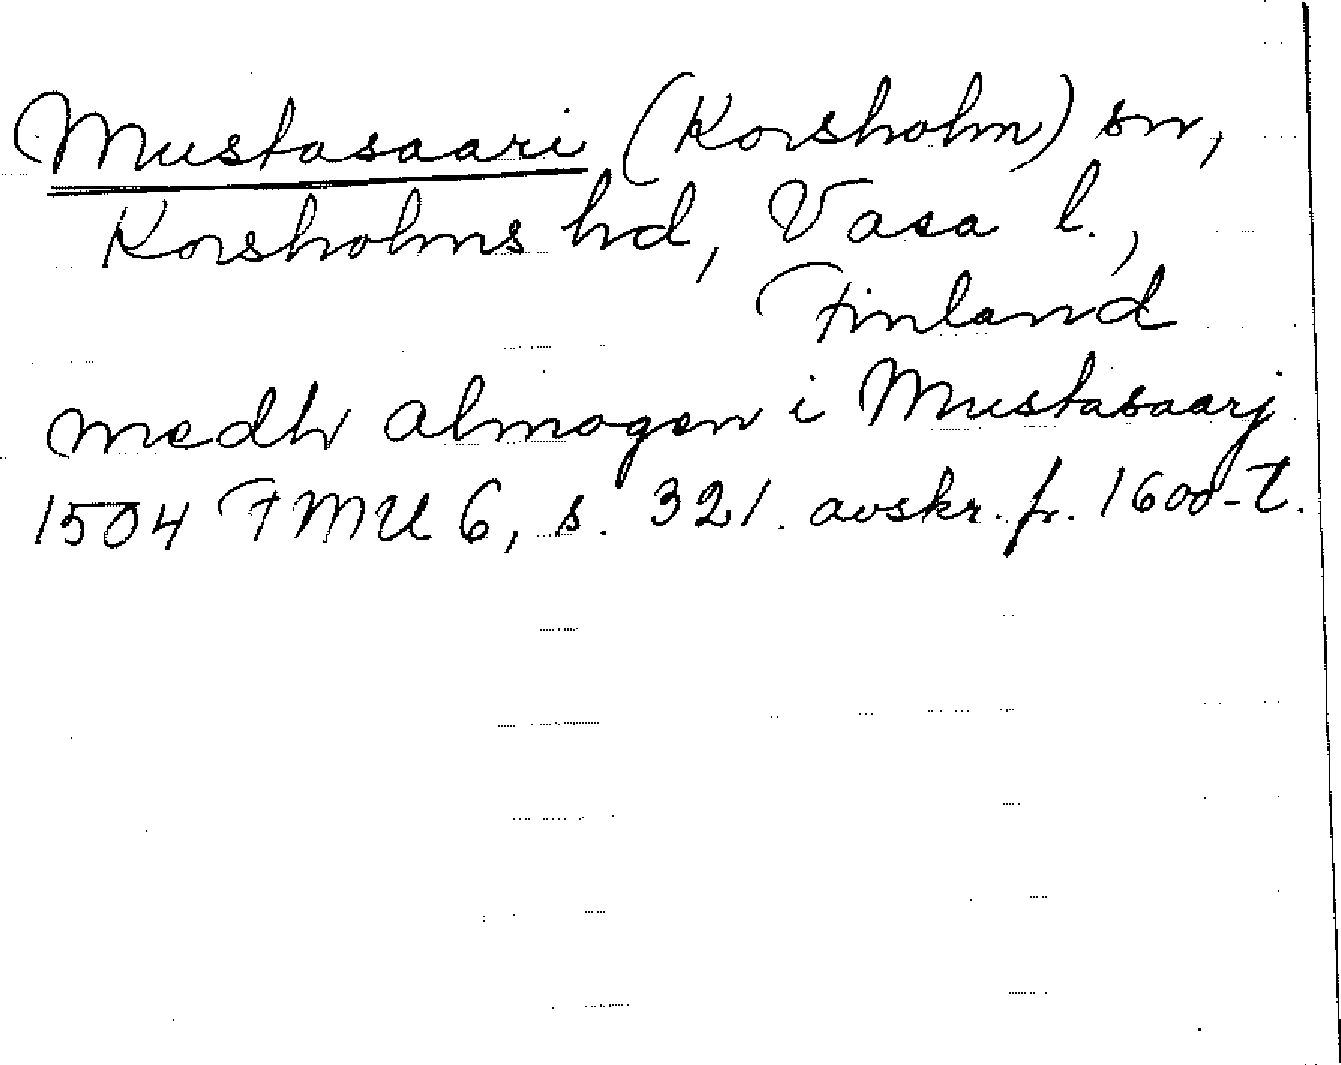 Mustasaari (Korsholm) sn,
Korsholms hd, Vasa l.,
Finland
medh almogen i Mustasaarj
1504 FMU 6, s. 321. avskr. fr. 1600-t.